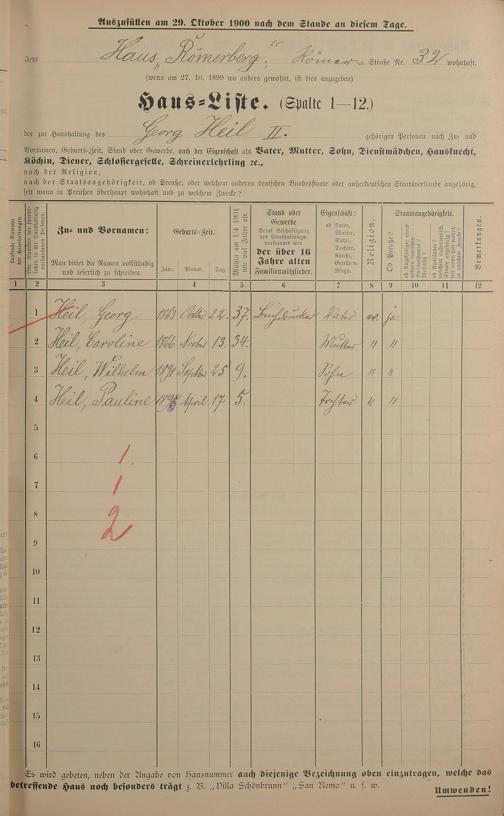 Auszufüllen am 29. Oktober 1900 nach dem Stande an diesem Tage.
Jetzt Haus „Römerberg“ Römer-Straße Nr. 32 wohnhaft.
(wenn am 27. 10. 1899 wo anders gewohnt, ist dies anzugeben)
Haus-Liste. (Spalte 1—12.)
der zur Haushaltung des Georg Heil II. gehörigen Personen nach Zu- und
Vornamen, Geburts-Zeit, Stand oder Gewerbe, nach der Eigenschaft als Vater, Mutter, Sohn, Dienstmädchen, Hausknecht,
Köchin, Diener, Schlossergeselle, Schreinerlehrling ꝛc.,
nach der Religion,
nach der Staatsangehörigkeit, ob Preuße, oder welchem anderen deutschen Bundesstaate oder außerdeutschen Staatsverbande angehörig,
seit wann in Preußen überhaupt wohnhaft und zu welchem Zwecke?
Zu- und Vornamen:
Man bittet die Namen vollständig und leserlich zu schreiben
Geburts-Zeit.
Jahr. Monat. Tag.
Mithin am 1/4 1901 wie viel Jahre alt.
Stand oder Gewerbe
der über 16 Jahre alten Familienmitglieder.
Eigenschaft:
ob Vater, Mutter, Sohn, Tochter, Knecht, Geselle ꝛc. Magd.
Religion.
Ob Preuße?
Staatsangehörigkeit.
Bemerkungen.
1 2 3 4 5 6 7 8 9 10 11 12
1 Heil, Georg 1863 Octbr 22. 37. Buchdrucker Vater ev. ja
2 Heil, Caroline 1866 Novbr 13. 34. Mutter " "
3 Heil, Wilhelm 1891 Septbr 25 9. Sohn " "
4 Heil, Pauline 1895 April 17 5. Tochter " "
5
6 1
7 1
8 2
9
10
11
12
13
14
15
16
Es wird gebeten, neben der Angabe von Hausnummer auch diejenige Bezeichnung oben einzutragen, welche das
betreffende Haus noch besonders trägt z. B. „Villa Schönbrunn“ „San Remo“ u. s. w.
Umwenden!